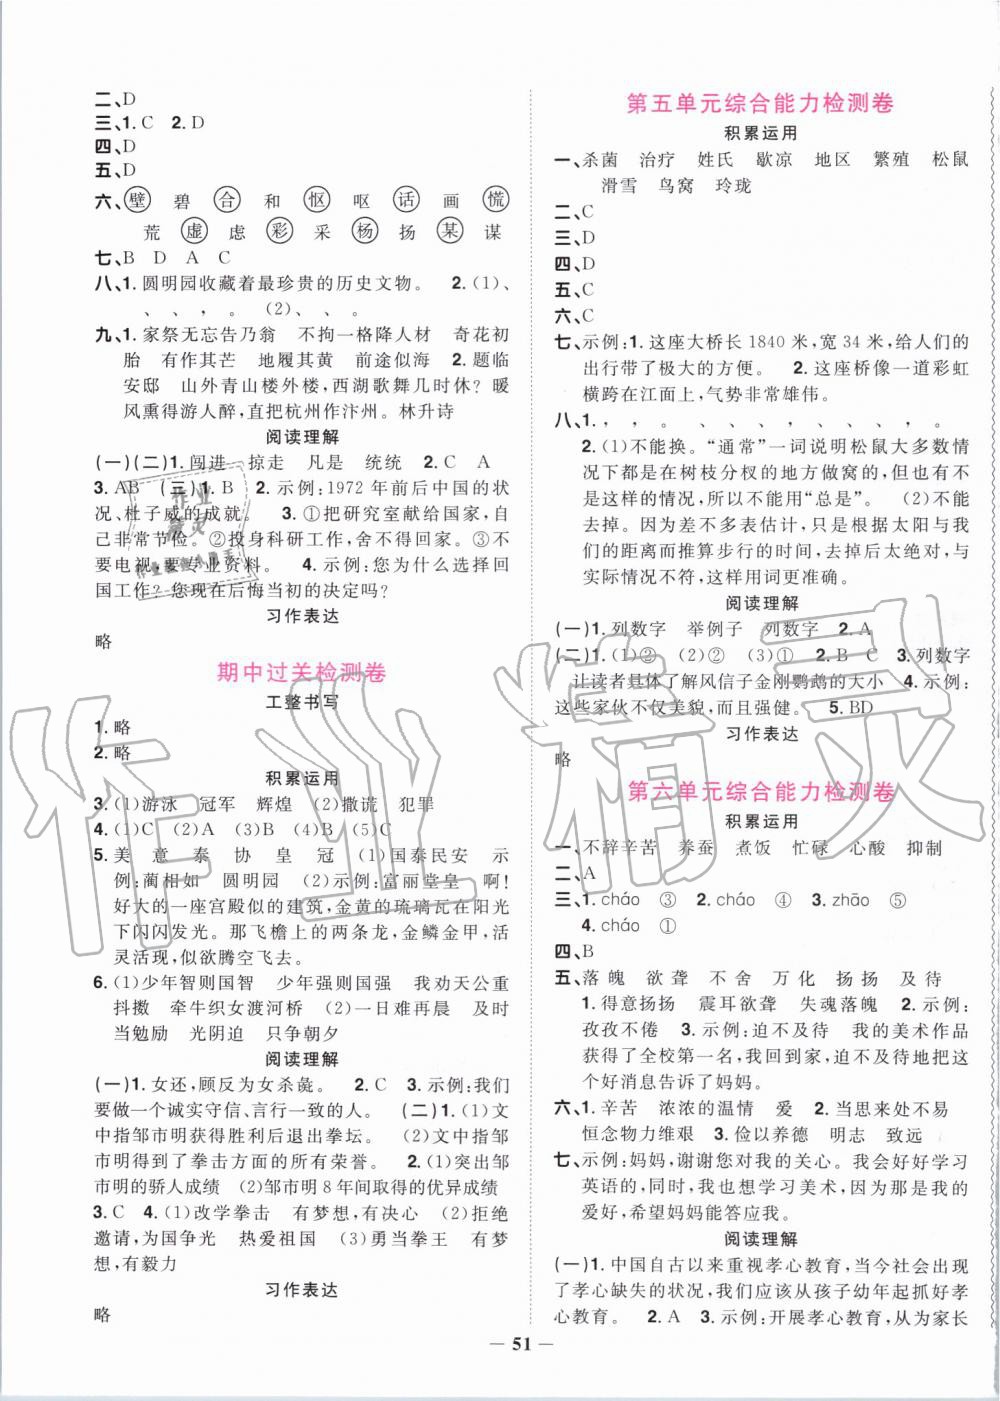 二、D
三、1. C 2. D
四、D
五、D
六、壁 碧 合 和 怄 呕 话 画 慌
荒 虚 虑 彩 采 杨 扬 某 谋
七、B D A C
八、1. 圆明园收藏着最珍贵的历史文物。 2. (1)、
、、，。 (2)、、。
九、1. 家祭无忘告乃翁 不拘一格降人材 奇花初
胎 有作其芒 地履其黄 前途似海 2. 题临
安邸 山外青山楼外楼,西湖歌舞几时休？暖
风熏得游人醉,直把杭州作汴州。林升诗
阅读理解
(一)(二)1. 闯进 掠走 凡是 统统 2. C A
3. AB (三)1. B 2. 示例:1972 年前后中国的状
况、杜子威的成就。 3. ①把研究室献给国家,自
己非常节俭。②投身科研工作,不得回家。③不
要电视,要专业资料。 4. 示例:您为什么选择回
国工作？您现在后悔当初的决定吗？
习作表达
略
期中过关检测卷
工整书写
1. 略
2. 略
积累运用
3. (1)游泳 冠军 辉煌 (2)撒谎 犯罪
4. (1)C (2)A (3)B (4)B (5)C
5. 美 意 泰 协 皇 冠 (1)国泰民安 示
例:蔺相如 圆明园 (2)示例:富丽堂皇 啊！
好大的一座宫殿似的建筑,金黄的琉璃瓦在阳光
下闪闪发光。那飞檐上的两条龙,金鳞金甲,活
灵活现,似欲腾空飞去。
6. (1)少年智则国智 少年强则国强 我劝天公重
抖擞 牵牛织女渡河桥 (2)一日难再晨 及时
当勉励 光阴迫 只争朝夕
阅读理解
(一)1. 女还,顾反为女杀彘。 2. C 3. 示例:我们
要做一个诚实守信、言行一致的人。 (二)1. (1)文
中指邹市明获得胜利后退出拳坛。 (2)文中指邹
市明得到了拳击方面的所有荣誉。 2. (1)突出邹
市明的骄人成绩 (2)邹市明 8 年间取得的优异成绩
3. C 4. (1)改学拳击 有梦想,有决心 (2)拒绝
邀请,为国争光 热爱祖国 (3)勇当拳王 有梦
想,有毅力
习作表达
略
第五单元综合能力检测卷
积累运用
一、杀菌 治疗 姓氏 歇凉 地区 繁殖 松鼠
滑雪 鸟窝 玲珑
二、C
三、D
四、D
五、C
六、C
七、示例:1. 这座大桥长 1840 米,宽 34 米,给人们的
出行带了极大的方便。 2. 这座桥像一道彩虹
横跨在江面上,气势非常雄伟。
八、1. ， ， 。 、 、 ， 、 、 ， 。
2. (1)不能换。“通常”一词说明松鼠大多数情
况下都是在树枝分杈的地方做窝的,但也有不
是这样的情况,所以不能用“总是”。 (2)不能
去掉。因为很多表估计,只是根据太阳与我
们的距离而推算步行的时间,去掉后太绝对,与
实际情况不符,这样用词更准确。
阅读理解
(一)1. 列数字 举例子 列数字 2. A
(二)1. (1)② (2)② (3)① 2. B C 3. 列数字
让读者具体了解风信子金刚鹦鹉的大小 4. 示例:
这些家伙不仅美貌,而且强健。 5. BD
习作表达
略
第六单元综合能力检测卷
积累运用
一、不辞辛苦 养蚕 煮饭 忙碌 心酸 抑制
二、A
三、1. cháo ③ 2. cháo ④ 3. zhāo ⑤
4. cháo ①
四、B
五、落 魄 欲 聋 不 舍 万 化 扬 扬 及 待
1. 得意扬扬 震耳欲聋 失魂落魄 2. 示例:
孜孜不倦 3. 示例:迫不及待 我的美术作品
获得了全校第一名,我回到家,迫不及待地把这
个好消息告诉了妈妈。
六、1. 辛苦 浓浓的温情 爱 2. 当思来处不易
恒念物力维艰 3. 俭以养德 明志 致远
七、示例:妈妈,谢谢您对我的关心。我会好好学习
英语的,同时,我也想学习美术,因为那是我的
爱好,希望妈妈能答应我。
阅读理解
(一)1. 中国自古以来重视孝心教育,当今社会出现了
孝心缺失的状况,我们应该从孩子幼年起抓好孝
心教育。 2. A 3. 示例:开展孝心教育,从为家长
51
作业精灵
作业
精灵